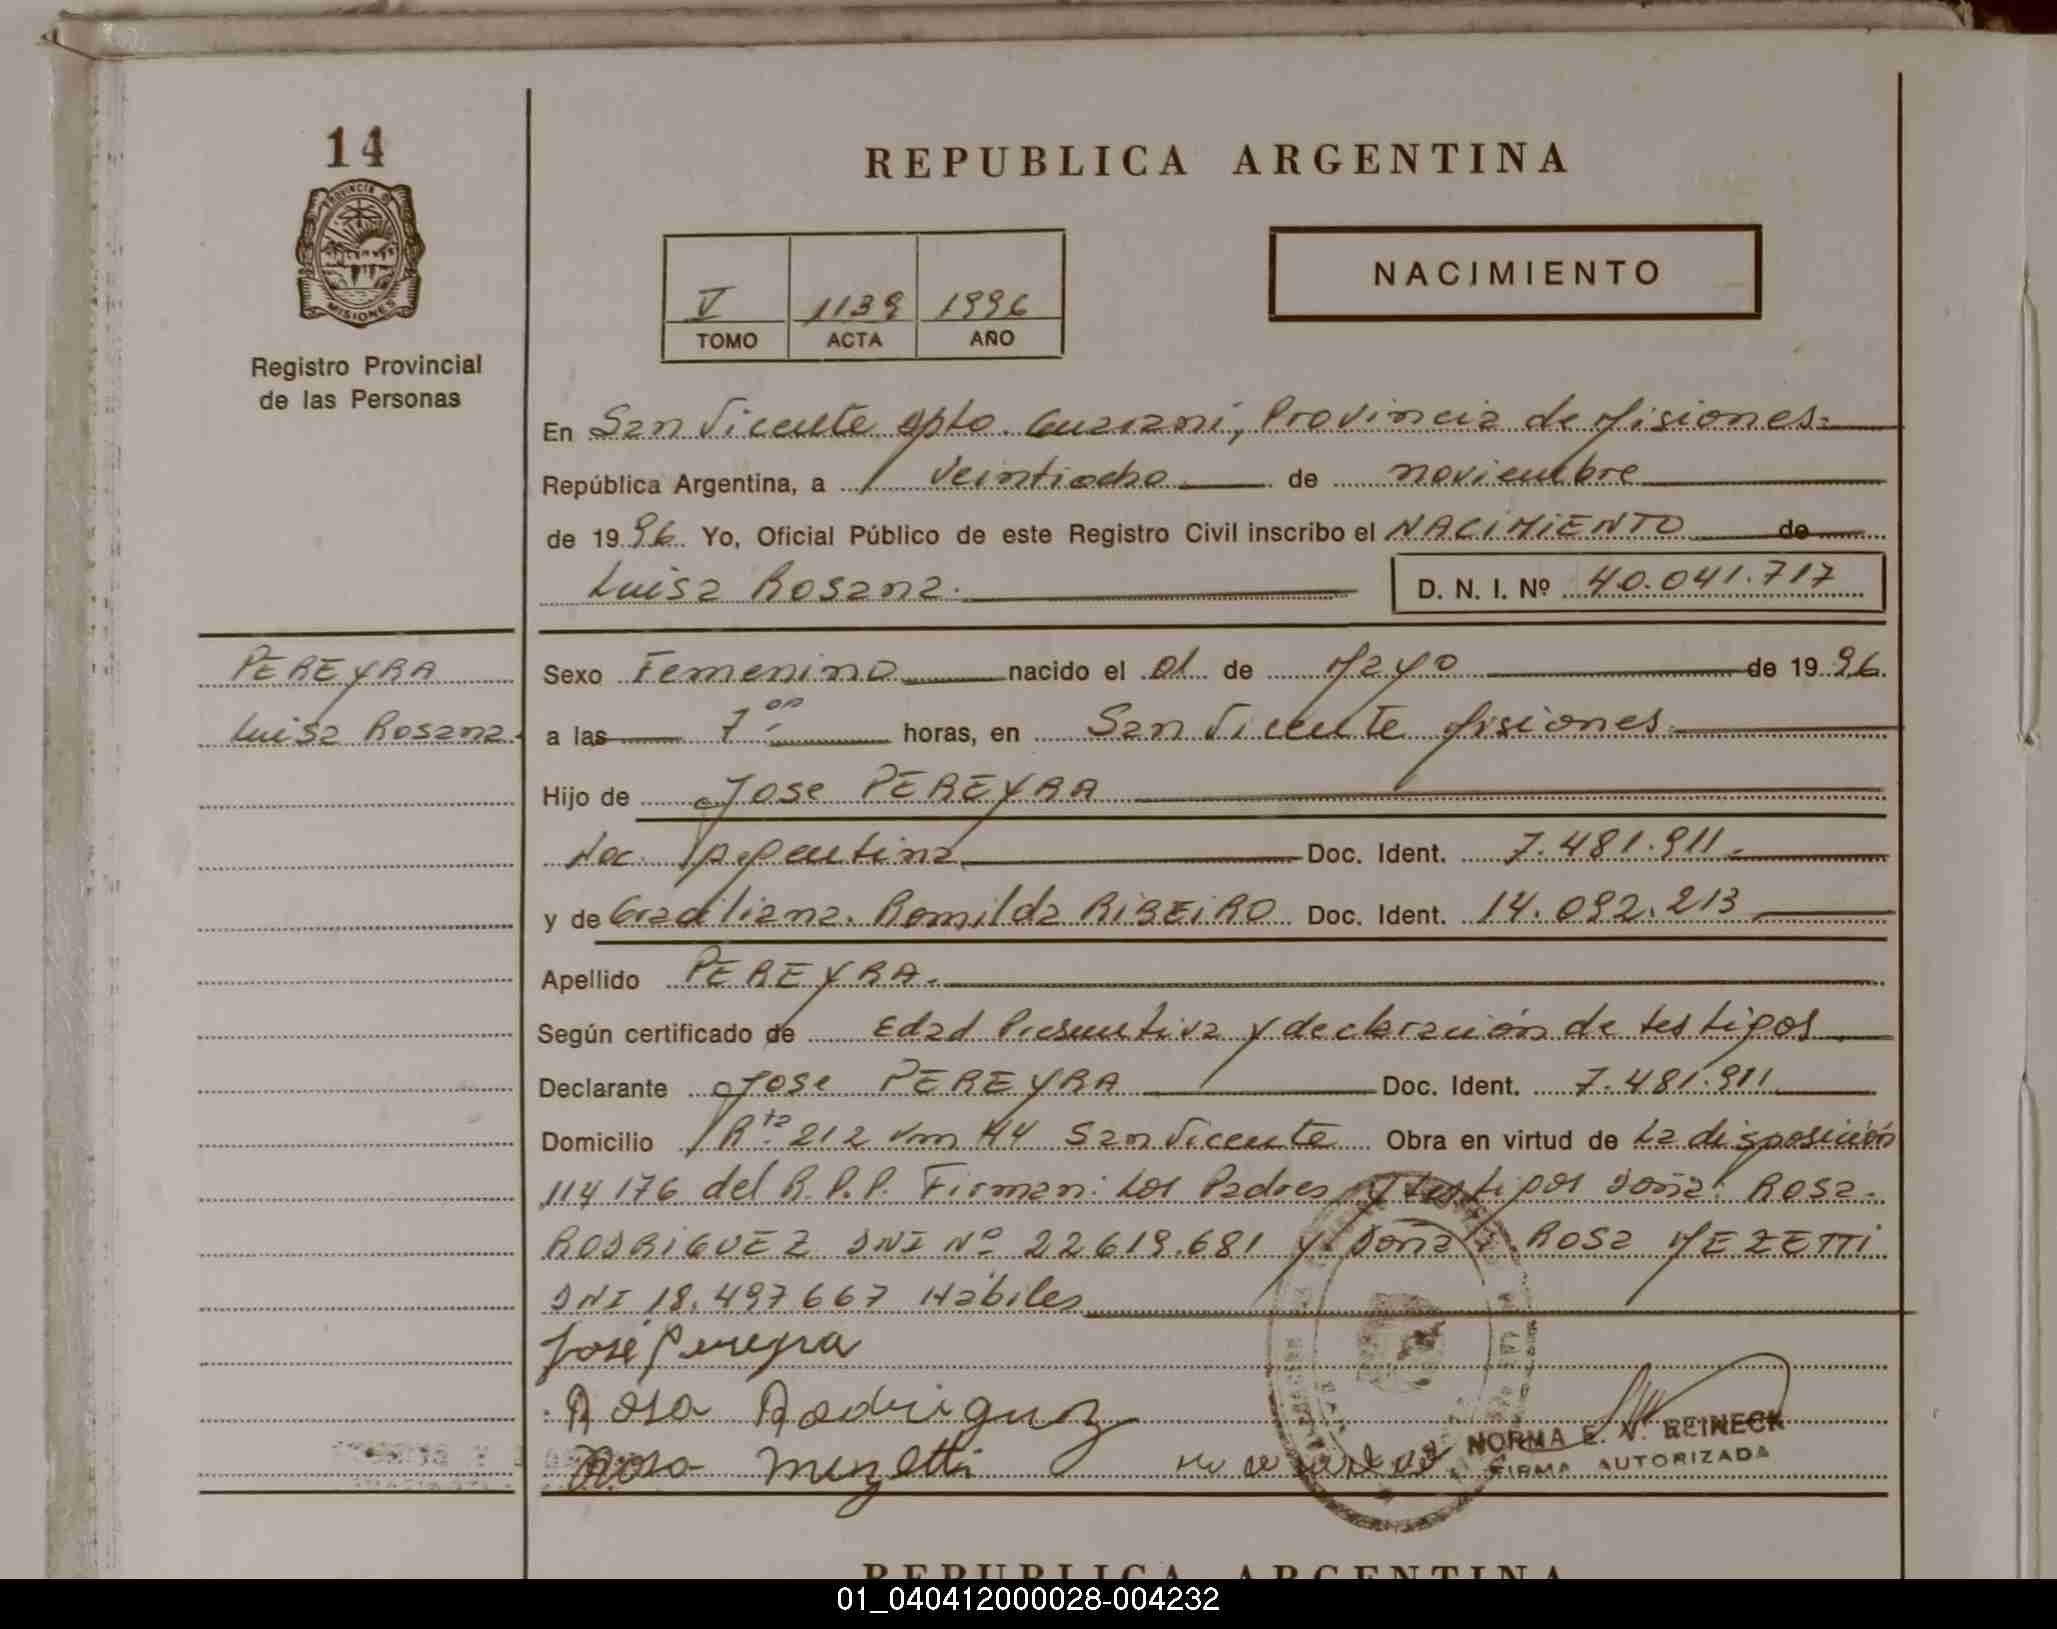 14
PROVINCIA DE
MISIONES
Registro Provincial
de las Personas
REPUBLICA ARGENTINA
V 1139 1996
TOMO ACTA AÑO
NACIMIENTO
En San Vicente Dpto. Guarani, Provincia de Misiones.
República Argentina, a veintiocho de noviembre
de 1996 Yo, Oficial Público de este Registro Civil inscribo el NACIMIENTO de
Luisa Rosana. D. N. I. Nº 40.041.717
PEREYRA
Luisa Rosana.
Sexo Femenino nacido el 01 de Mayo de 1996.
a las 7 00 horas, en San Vicente Misiones.
Hijo de Jose PEREYRA
Nac. Argentina Doc. Ident. 7.481.911.
y de Graciliana. Romilda RIBEIRO Doc. Ident. 14.092.213
Apellido PEREYRA.
Según certificado de Edad Presuntiva y declaración de testigos
Declarante Jose PEREYRA Doc. Ident. 7.481.911
Domicilio Rta. 212 km 44 San Vicente Obra en virtud de La disposición
114/76 del R.P.P. Firman: Los Padres y testigos Doña: Rosa.
RODRIGUEZ DNI Nº 22619.681 y Doña: Rosa MEZETTI
DNI 18.497.667 Hábiles
José Pereyra
Rosa Rodriguez
Rosa Mezetti
NORMA E. V. REINECK
FIRMA AUTORIZADA
REPUBLICA ARGENTINA
01_040412000028-004232